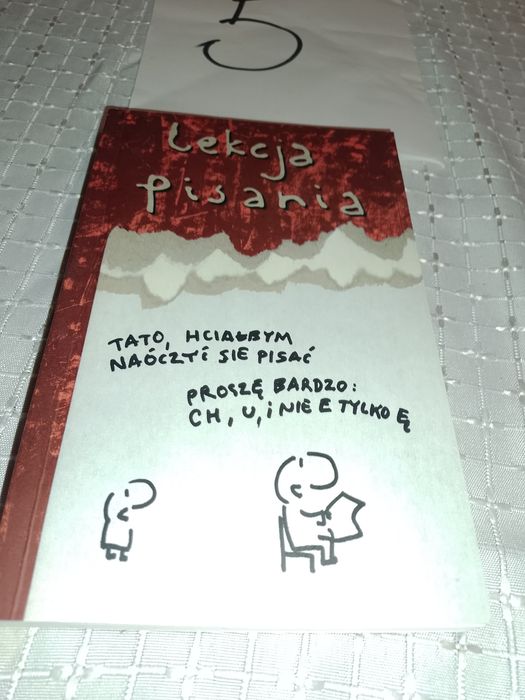 5
Lekcja
pisania
TATO, HCIAŁBYM
NAÓCZYĆ SIE PISAĆ
PROSZĘ BARDZO:
CH, U, i NIE E TYLKO Ę